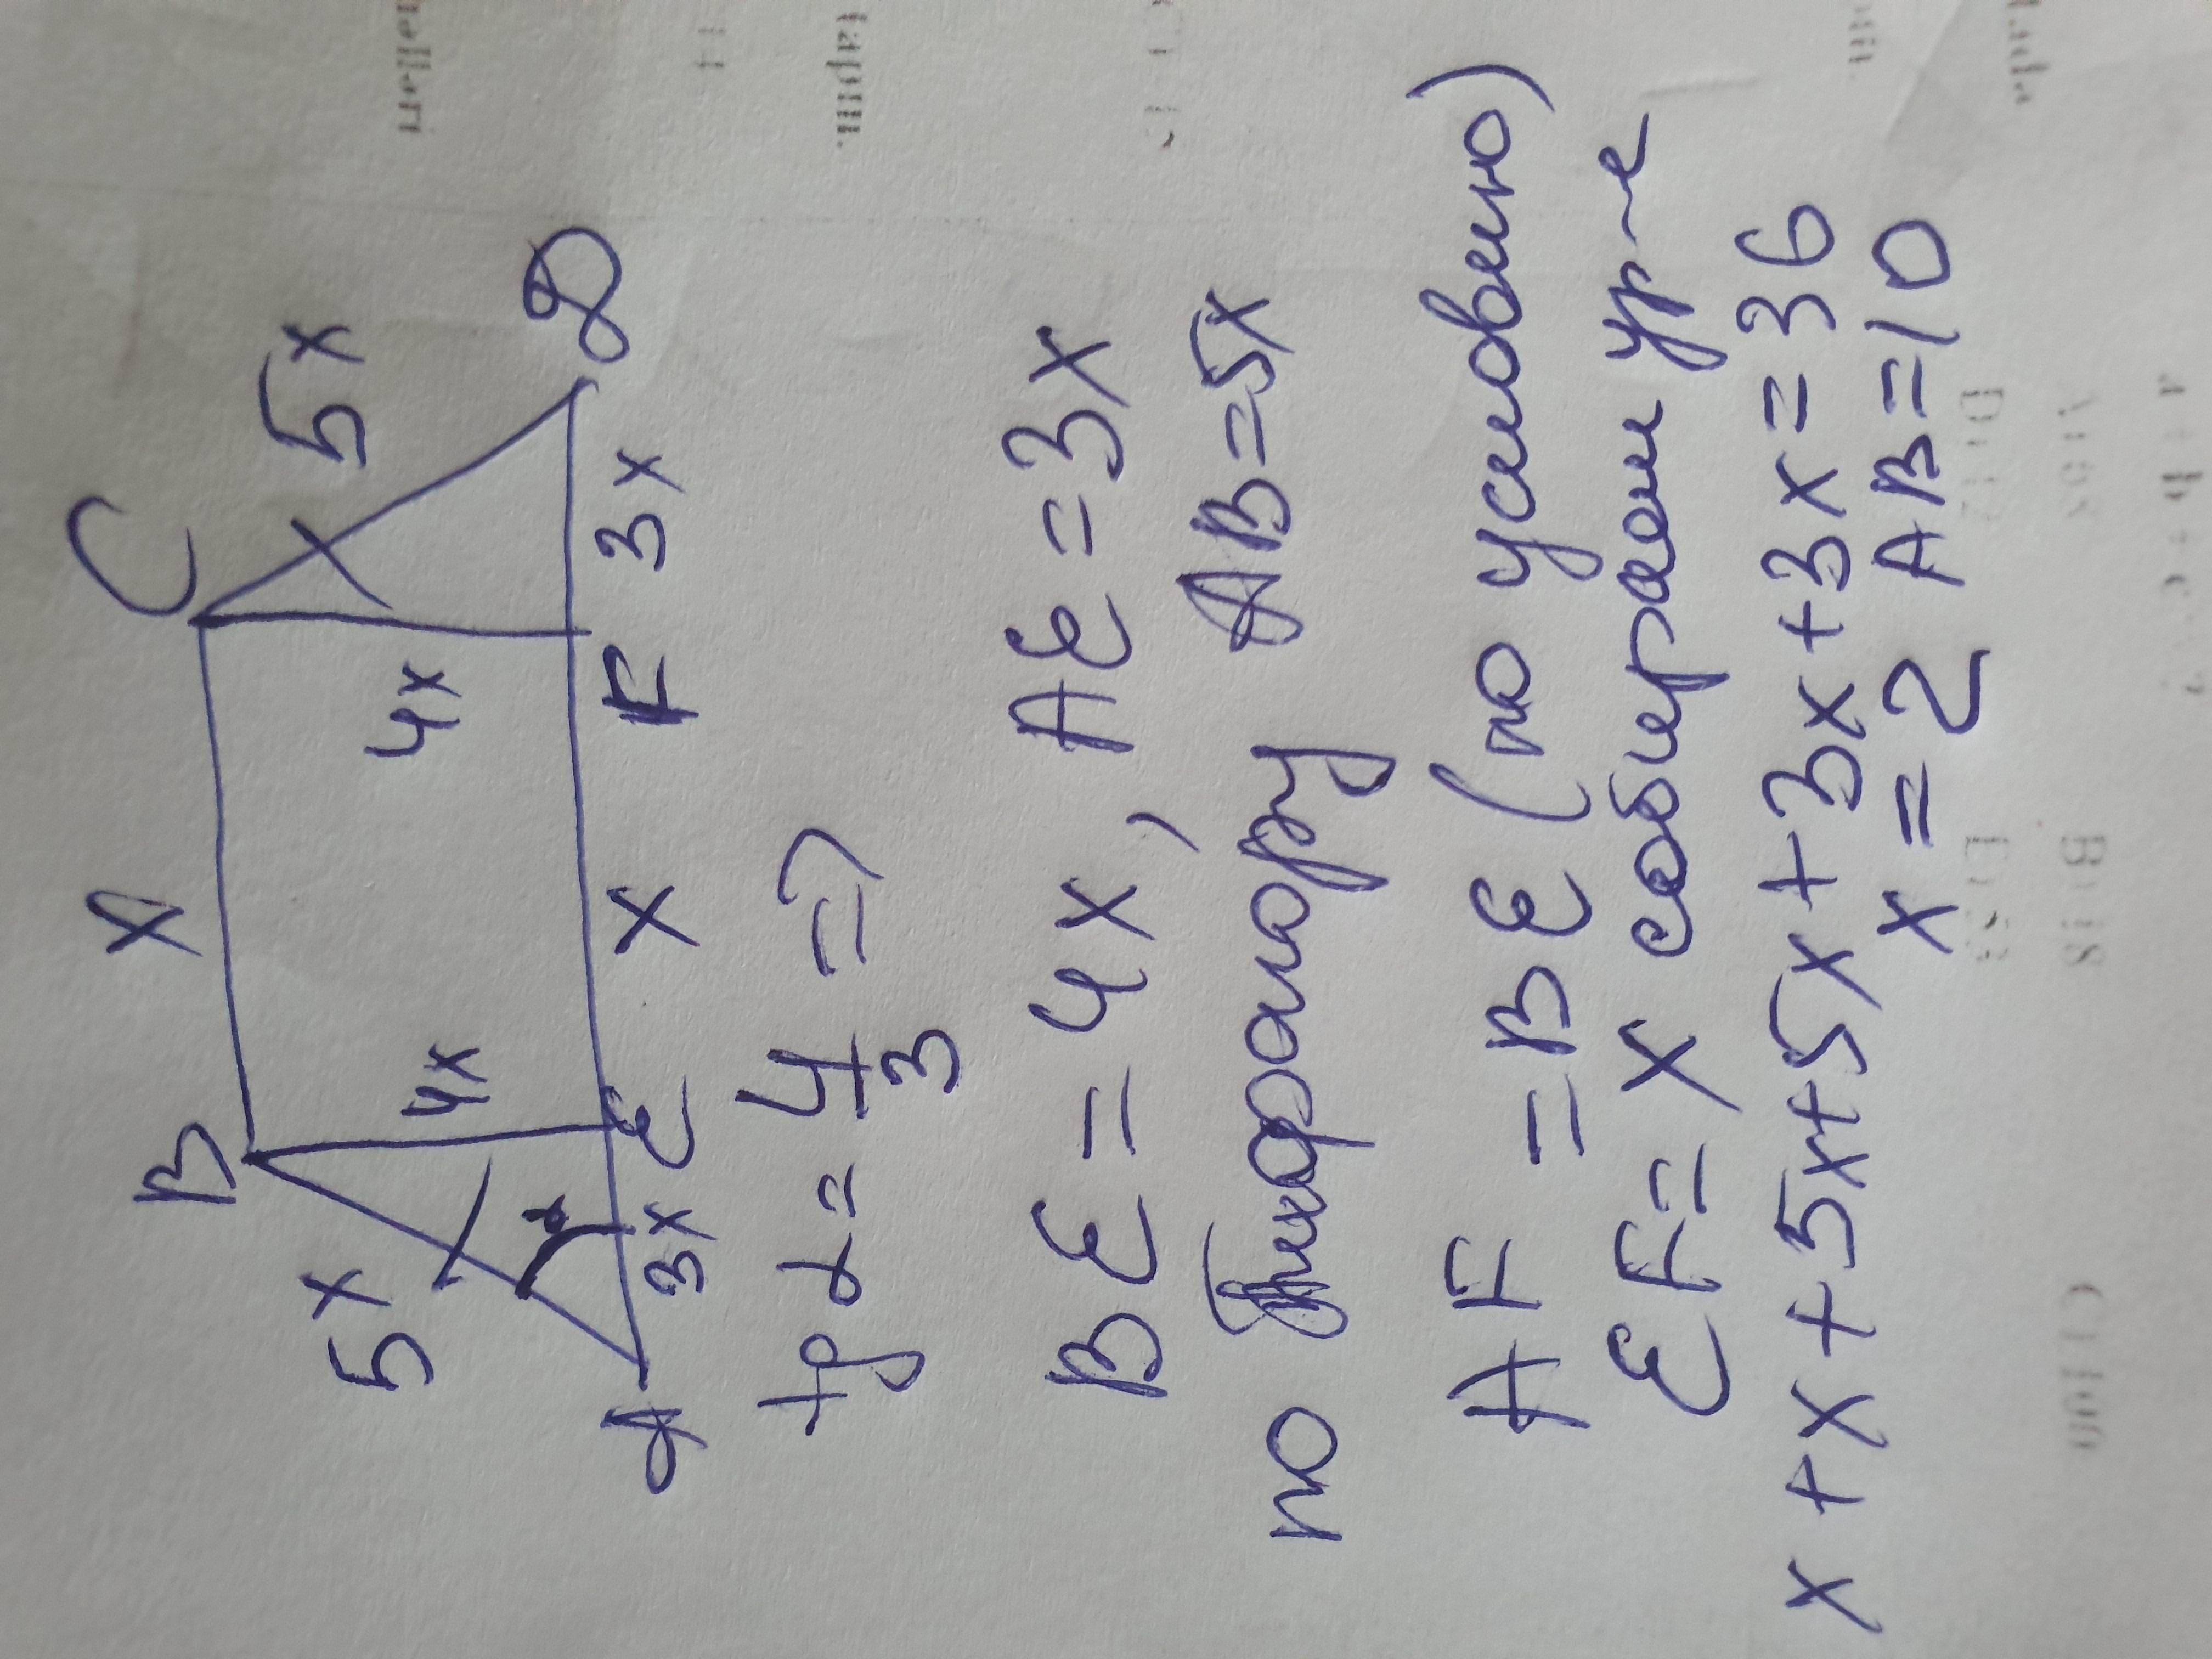 C
B
x
5x
5x
4x
4x
α
A
3x
E
x
F
3x
D
tg α = 4/3 =>
BE = 4x, AE = 3x
по Пифагору AB = 5x
AF = BE (по условию)
EF = x собираем ур-е
x + x + 5x + 5x + 3x + 3x = 36
x = 2 AB = 10